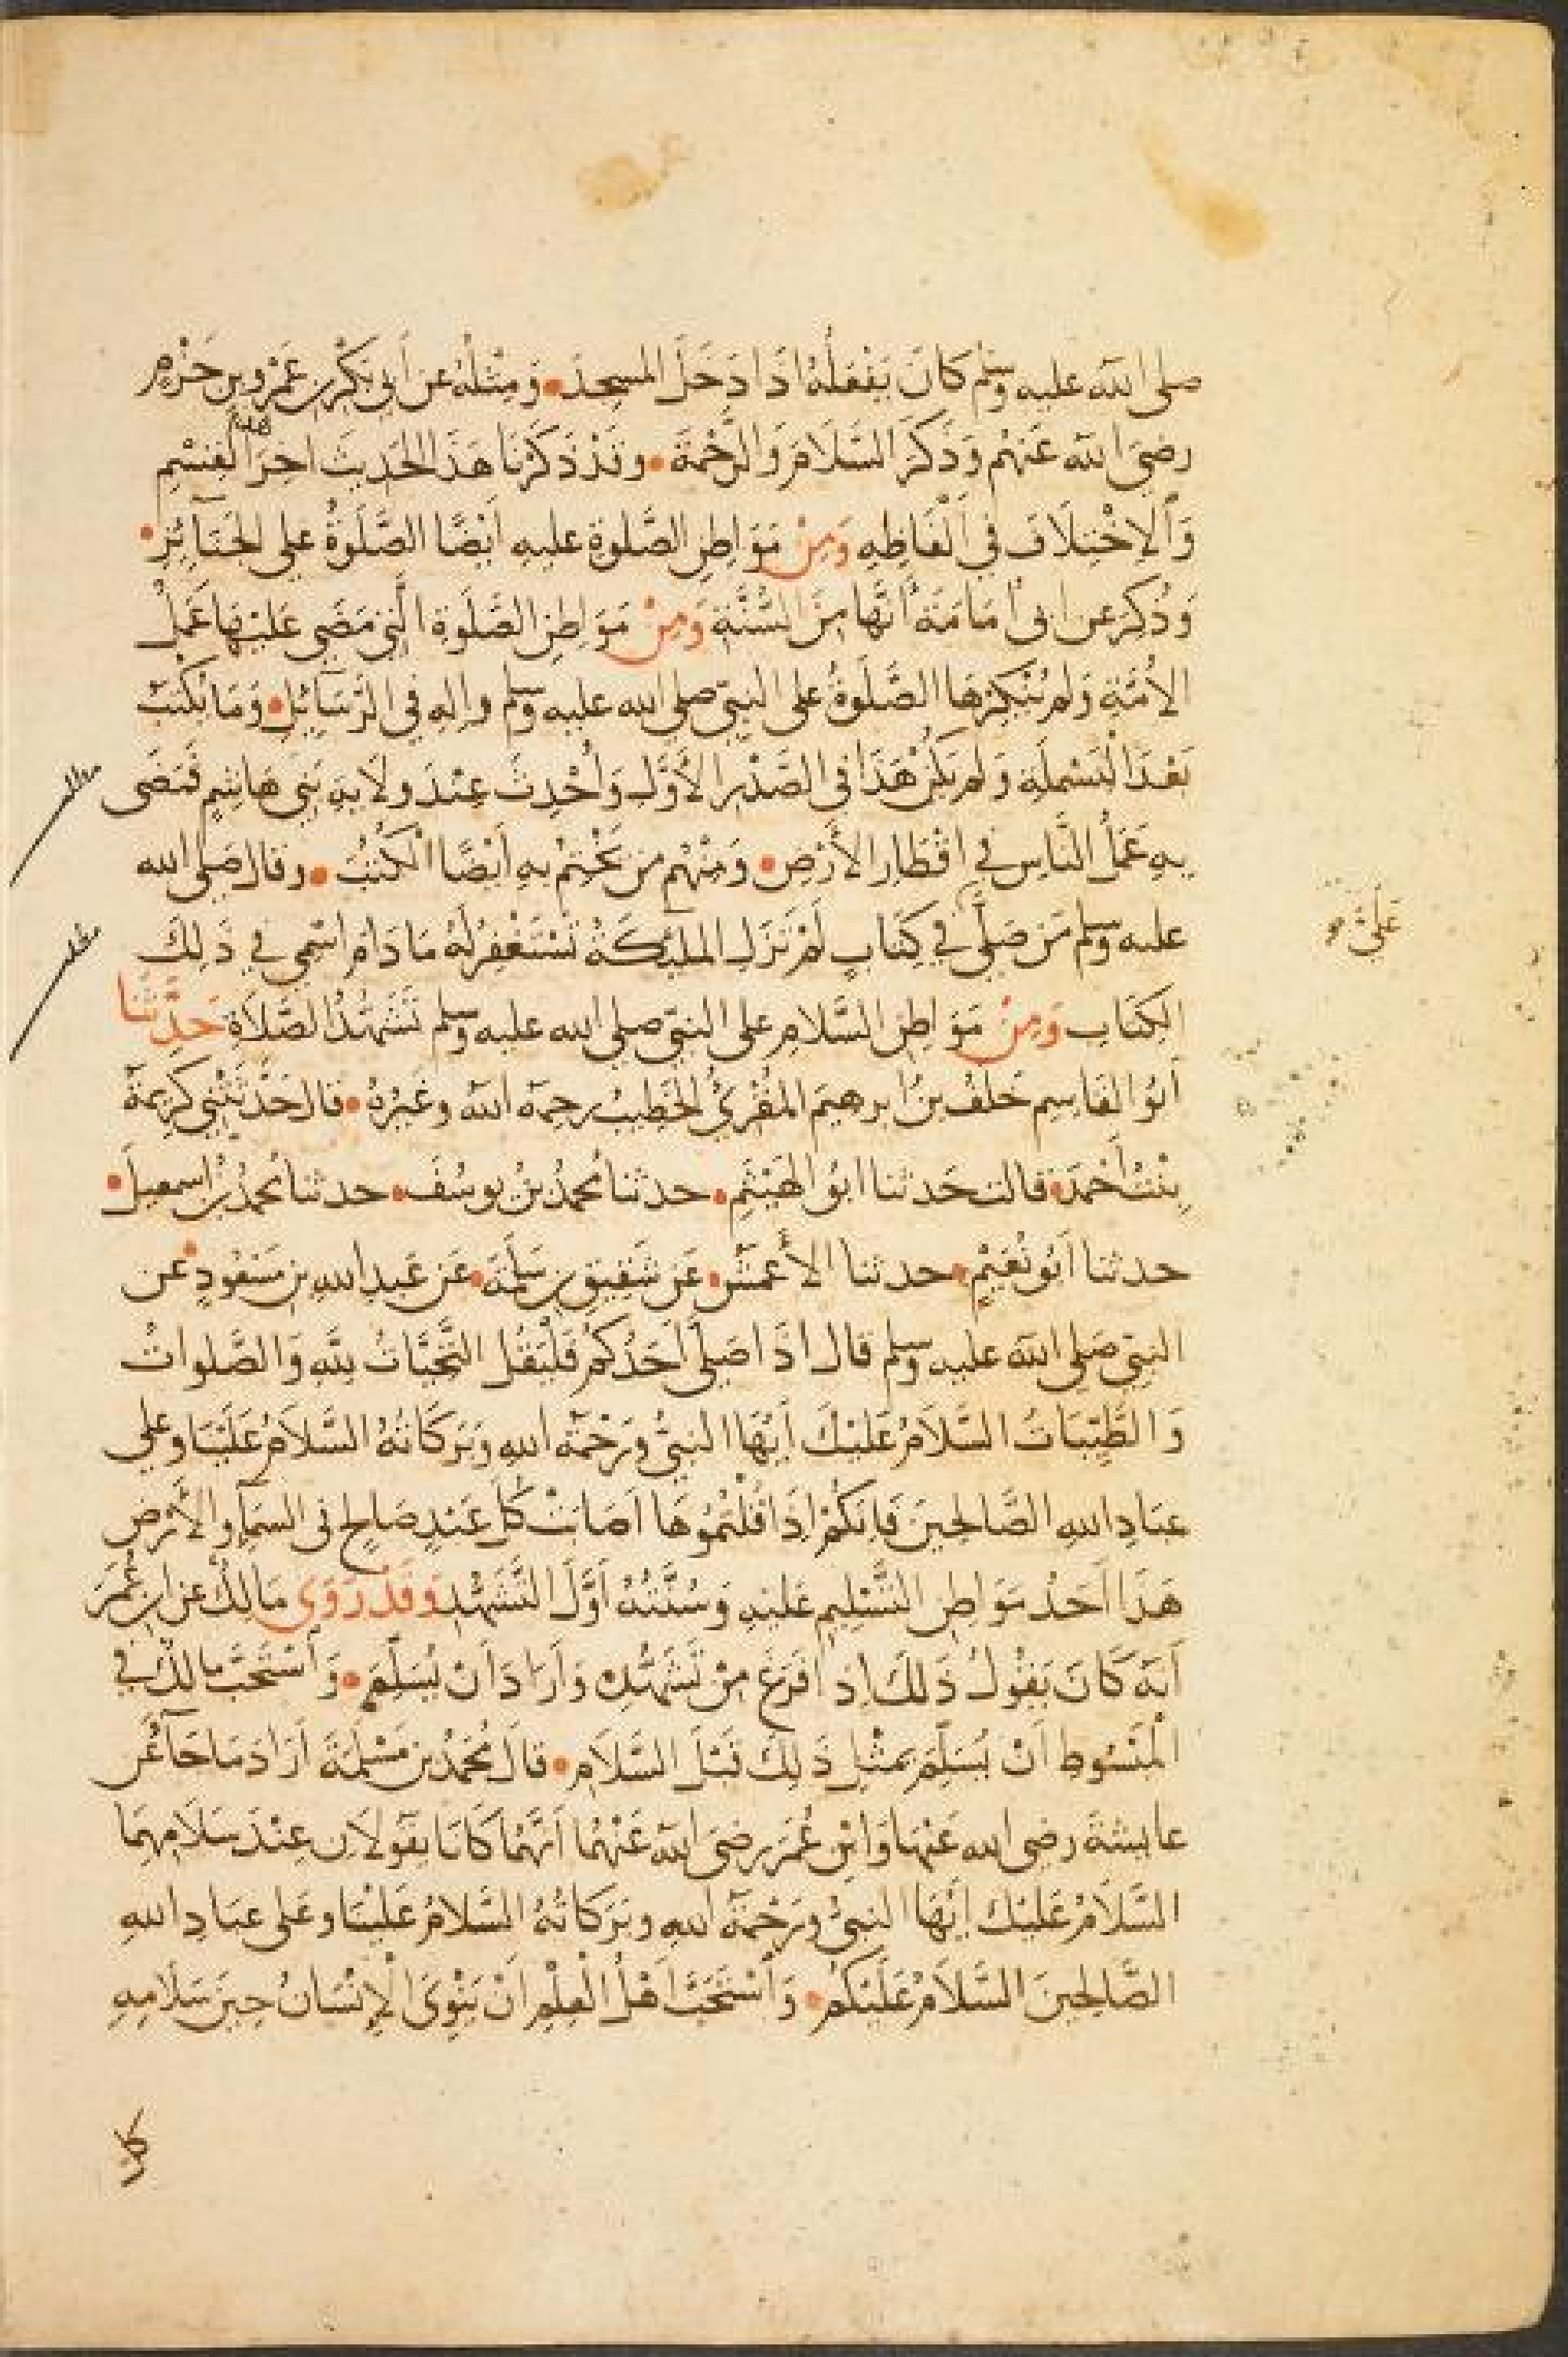 صلى الله عليه وسلم كَانَ يَفْعَلُهُ اذَا دَخَلَ المسجِدَ • وَمِثْلُهُ عن اَبى بَكْرِ بنِ عَمْرِو بنِ حَزْمٍ
هذا
رضىَ الله عَنهُم وَذَكَرَ السَّلَامَ وَالرَّحْمَةَ • وقَدْ ذَكَرْنَا هَذَا الحَدِيثَ اخِرَ القِسْمِ
وَالاِخْتِلَافَ فى اَلْفَاظِهِ وَمِنْ مَوَاطِنِ الصَّلوةِ عليهِ اَيْضًا الصَّلَوةُ على الجَنَآئِزِ •
وَذُكِرَ عن ابى اُمَامَةَ اَنَّها مِنَ السُّنَّةِ وَمِنْ مَوَاطِنِ الصَّلَوةِ الَّتِى مَضَى عَلَيْهَا عَمَلُ
الاُمَّةِ وَلم تُنْكِرْهَا الصَّلَوةُ على النبىّ صلى الله عليه وسلم واله فى الرَّسَآئِلِ • وَمَا يُكْتَبُ
بَعْدَ الْبَسْمَلَةِ وَلَم يَكُنْ هَذَا فى الصَّدْرِ الأَوَّلِ وَاُحْدِثَ عِنْدَ ولَايَةِ بَنِى هَاشِمٍ فَمَضَى
بِهِ عَمَلُ النَّاسِ فى اقْطَارِ الأَرْضِ • وَمِنْهُم مَن يَخْتِمُ بِهِ اَيْضًا الْكُتُبَ • وقال صَلى الله
عليه وسلم مَن صَلَّى فى كِتَابٍ لَمْ تَزَلِ الملئِكَةُ تَسْتَغْفِرُ لَهُ مَا دَامَ اسْمِى فِى ذَلِكَ
عَلَىَّ صح
الكِتَابِ وَمِنْ مَوَاطِنِ السَّلامِ على النبىّ صلى الله عليه وسلم تَشَهُّدُ الصَّلاَةِ حَدَّثَنا
اَبُو القَاسِمِ خَلَفُ بنُ ابرهيمَ المُقْرِئُ الخَطِيبُ رحمه الله وغَيْرُهُ • قال حَدَّثَتْنِى كَرِيمَةُ
بِنْتُ اَحْمَدَ • قالت حَدثنا ابُو الهَيْثَمِ • حدثنا محمدُ بنُ يوسُفَ • حدثنا محمدُ بنُ اسمعيلَ •
حدثنا اَبُو نُعَيْمٍ • حدثنا الأَعمَشُ • عَن شَقِيقِ بنِ سَلَمَةَ • عَن عَبدِ اللهِ بنِ مَسْعُودٍ • عن
النبىّ صَلى الله عليه وسلم قال اذَا صَلَّى اَحَدُكُمْ فَلْيَقُلِ التَّحِيَّاتُ لِلَّهِ وَالصَّلواتُ
وَالطَّيِّبَاتُ السَّلَامُ عَلَيْكَ اَيُّهَا النبىُّ ورَحْمَةُ اللهِ وَبَرَكَاتُهُ السَّلَامُ عَلَيْنَا وعلى
عبَادِ اللهِ الصَّالِحِينَ فَاِنَّكُمْ اِذَا قُلْتُمُوهَا اَصَابَتْ كلَّ عَبْدٍ صَالِحٍ فى السمآءِ والأَرْضِ
هَذَا اَحَدُ مَوَاطِنِ التَّسْلِيمِ عَلَيْهِ وَسُنَّتُهُ اَوَّلَ التَّشَهُّدِ وقَدْ رَوَى مَالِكٌ عن ابنِ عُمَرَ
اَنَّهُ كَانَ يَقُولُ ذَلكَ اِذَا فَرَغَ مِنْ تَشَهُّدِهِ وَاَرَادَ اَنْ يُسَلِّمَ • وَاَسْتَحَبَّ مالكٌ فى
الْمَبْسُوطِ اَنْ يُسَلِّمَ بمثْلِ ذَلِكَ قَبْلَ السَّلَامِ • قالَ مُحَمَّدُ بن مَسْلَمَةَ اَرَادَ مَا جَآءَ عَن
عايشةَ رضى الله عَنْهَا وَابْنِ عُمَرَ رضىَ الله عَنْهُمَا اَنَّهُمَا كَانَا يقولاَنِ عِنْدَ سَلَامِهِمَا
السَّلَامُ عَلَيْكَ اَيُّهَا النبىُّ ورَحْمَةُ اللهِ وبَرَكَاتُهُ السَّلامُ عَلَيْنَا وعَلى عبَادِ اللهِ
الصَّالِحِينَ السَّلَامُ عَلَيْكُمْ • وَاَسْتَحَبَّ اَهْلُ الْعِلْمِ اَنْ يَنْوِىَ الْاِنْسَانُ حِينَ سَلَامِهِ